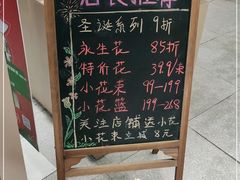 店长推荐
圣诞系列 9折
永生花 85折
特价花 39.9/束
小花束 99-199
小花篮 199-268
关注店铺送小花
小花束立减8元